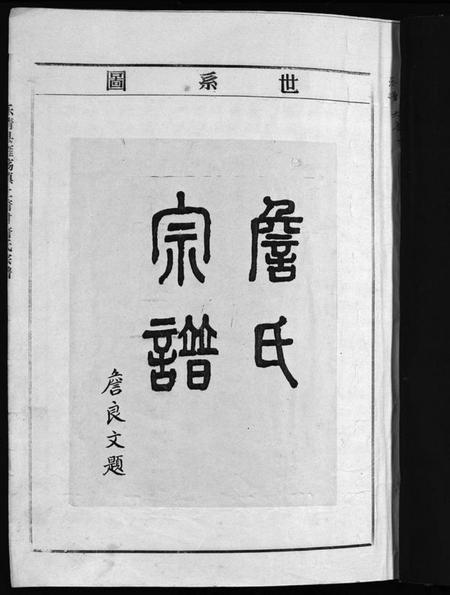 世系圖
詹氏
宗譜
詹良文题